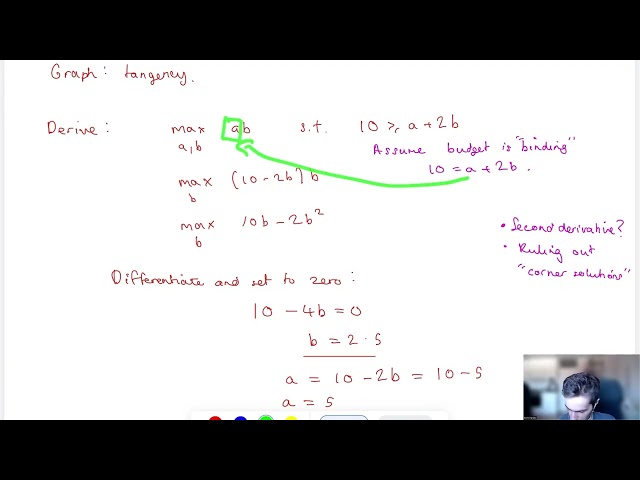 Graph: tangency.
Derive: max ab s.t. 10 ≥ a + 2b
a,b
Assume budget is "binding"
10 = a + 2b.
max (10 - 2b) b
b
max 10b - 2b²
b
• Second derivative?
• Ruling out
"corner solutions"
Differentiate and set to zero:
10 - 4b = 0
b = 2.5
a = 10 - 2b = 10 - 5
a = 5